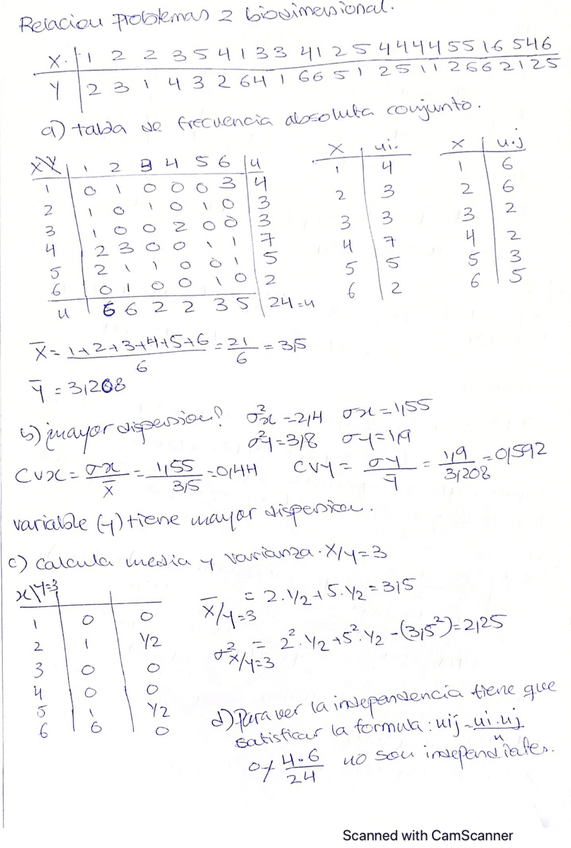 Relacion problemas 2 biosimensional.
X. 1 2 2 3 5 4 1 3 3 4 1 2 5 4 4 4 4 5 5 1 6 5 4 6
Y 2 3 1 4 3 2 6 4 1 6 6 5 1 2 5 1 1 2 6 6 2 1 2 5
a) tabla de frecuencia absoluta conjunto.
X\Y 1 2 3 4 5 6 u
1 0 1 0 0 0 3 4
2 1 0 1 0 1 0 3
3 1 0 0 2 0 0 3
4 2 3 0 0 1 1 7
5 2 1 1 0 0 1 5
6 0 1 0 0 1 0 2
u 6 6 2 2 3 5 24=u
X ui.
1 4
2 3
3 3
4 7
5 5
6 2
X u.j
1 6
2 6
3 2
4 2
5 3
6 5
X̄ = 1+2+3+4+5+6/6 = 21/6 = 3,5
Ȳ = 3,208
b) ¿mayor dispersion? σ²x = 2,4 σx = 1,55
σ²y = 3,8 σy = 1,9
CVX = σx/X̄ = 1,55/3,5 = 0,44 CVY = σy/Ȳ = 1,9/3,208 = 0,592
variable (y) tiene mayor dispersion.
c) calcula media y varianza. X/y=3
x\Y=3
1 0 0
2 1 1/2
3 0 0
4 0 0
5 1 1/2
6 0 0
X̄/y=3 = 2·1/2+5·1/2 = 3,5
σ²x/y=3 = 2²·1/2+5²·1/2-(3,5²) = 2,25
d) Para ver la independencia tiene que
satisficar la formula: uij = ui.uj/u
0 ≠ 4·6/24 no son independiales.
Scanned with CamScanner